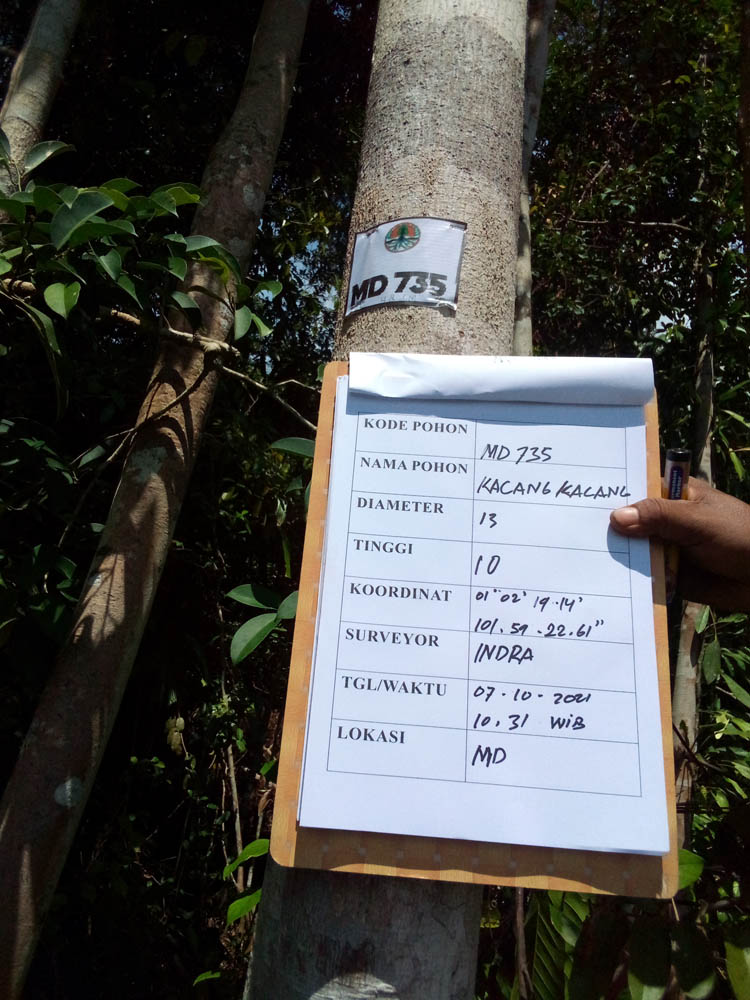 MD 735
KODE POHON MD 735
NAMA POHON KACANG KACANG
DIAMETER 13
TINGGI 10
KOORDINAT 01°02' 19.14'
101.59.22.61"
SURVEYOR INDRA
TGL/WAKTU 07-10-2021
10.31 WIB
LOKASI MD